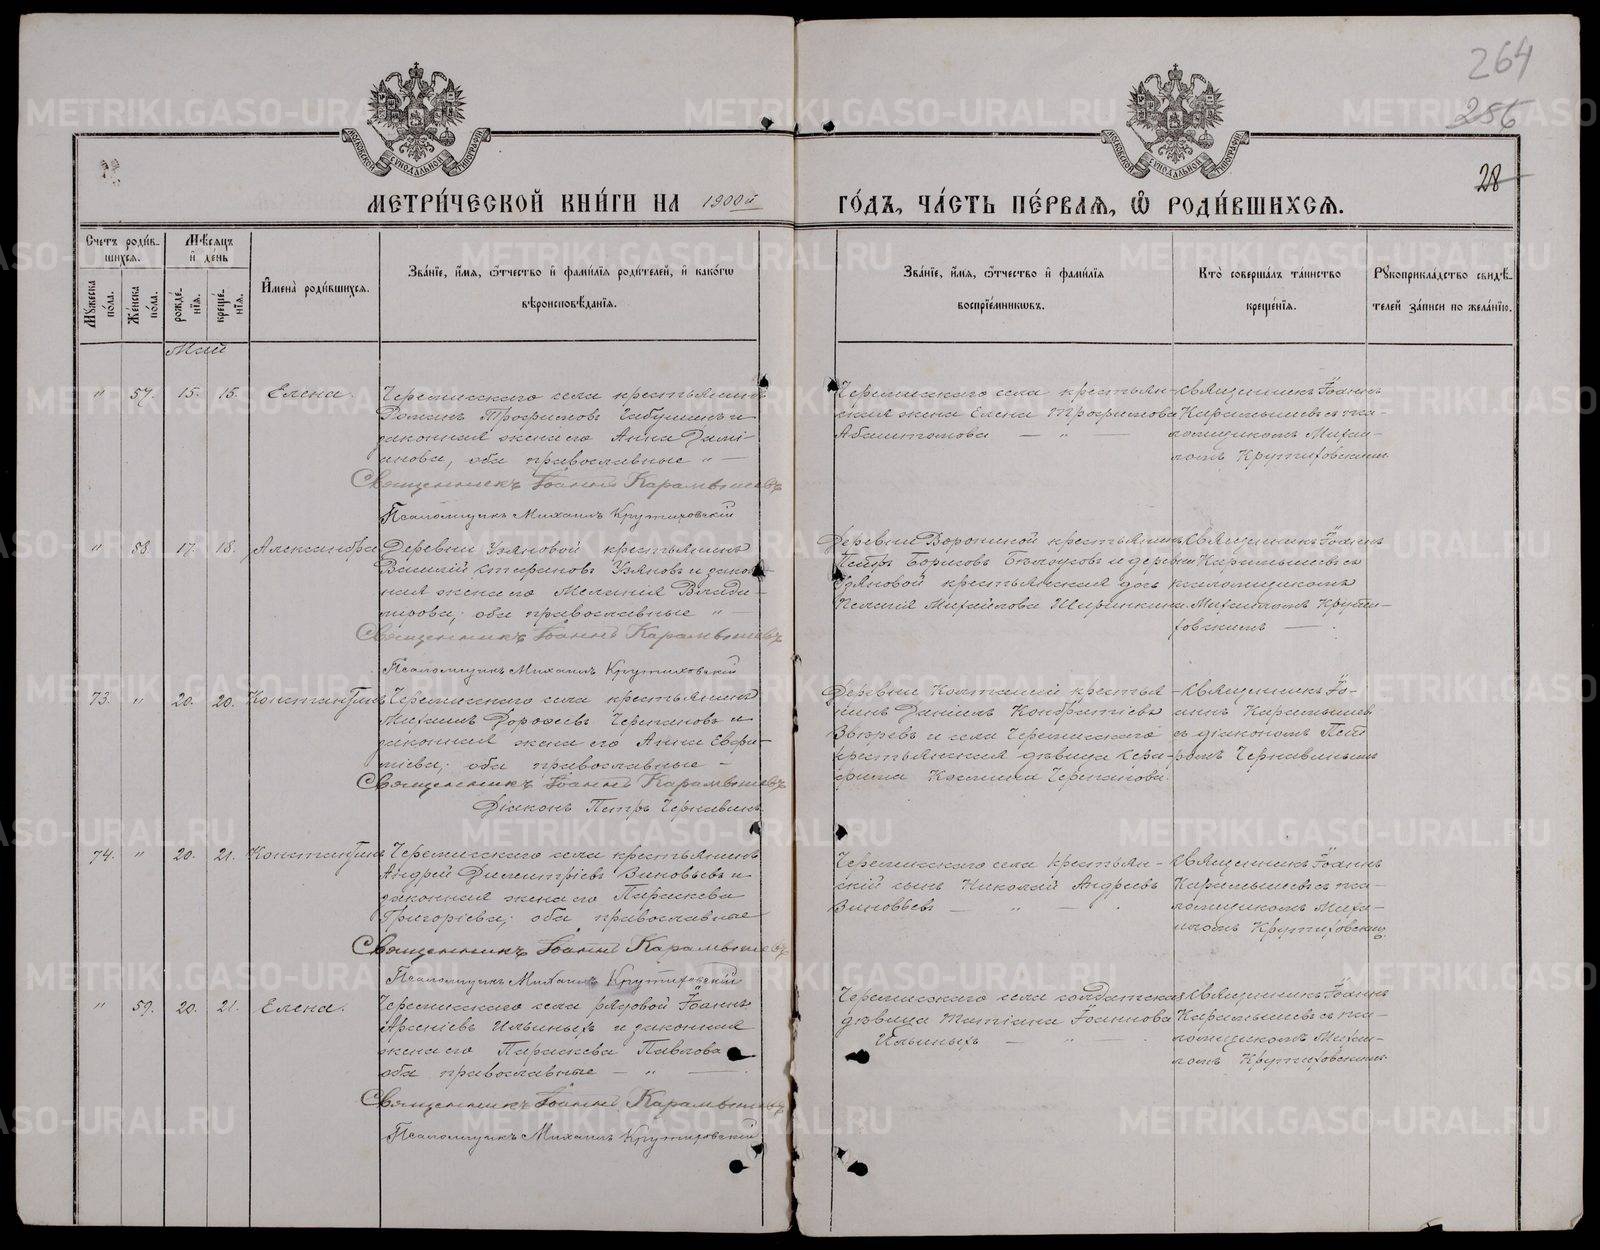 264
256
28
МЕТРИ́ЧЕСКОЙ КНИ́ГИ НА 1900й ГО́ДЪ, ЧА́СТЬ ПЕ́РВАЯ, Ѽ РОДИ́ВШИХСЯ.
Счетъ роди́в-
шихся.
Мѣсяцъ
и́ де́нь
Му́жеска по́ла.
Же́нска по́ла.
рожде́-нїя.
креще́-нїя.
И́мена̀ роди́вшихся.
Зва́нїе, и́мя, ѻ҆́тчество и́ фами́лїя роди́телей, и́ како́гѡ
вѣроисповѣ́данїя.
Зва́нїе, и́мя, ѻ҆́тчество и́ фами́лїя
воспрїе́мникѡвъ.
Кто̀ соверша́лъ та́инство
креще́нїя.
Рꙋкоприкла́дство свидѣ́-
телей за́писи по жела́нїю.
Май
" 57. 15. 15. Елена.
Черемисскаго села крестьянинъ
Романъ Трофимовъ и
законная жена его Анна Дамі-
анова, оба православные "
Священникъ Іоаннъ Карамышевъ
Псаломщикъ Михаилъ Крутиховскій
Черемисскаго села крестьян-
ская жена Елена Трофимова
— " —
Священникъ Іоаннъ
Карамышевъ съ пса-
ломщикомъ Михаи-
ломъ Крутиховскимъ
" 58. 17. 18. Александра
Деревни Узяновой крестьянинъ
Василій Стефановъ Узяновъ и закон-
ная жена его Меланія Влади-
мірова, оба православные "
Священникъ Іоаннъ Карамышевъ
Псаломщикъ Михаилъ Крутиховскій
Деревни Ворониной крестьянинъ
Петръ Борисовъ Бѣлоусовъ и деревни
Узяновой крестьянская дочь
Пелагія Михайлова Ширинкина
Священникъ Іоаннъ
Карамышевъ съ
псаломщикомъ
Михаиломъ Крути-
ховскимъ —
73. " 20. 20. Константинъ
Черемисскаго села крестьянинъ
Михаилъ Дорофеевъ Черепановъ и
законная жена его Анна Евфи-
міева, оба православные —
Священникъ Іоаннъ Карамышевъ
Діаконъ Петръ Чернавинъ
Деревни Колташей крестья-
нинъ Даніилъ Кондратіевъ
и села Черемисскаго
крестьянская дѣвица Сера-
фима Космина Черепанова.
Священникъ Іо-
аннъ Карамышев
съ діакономъ Пет-
ромъ Чернавинымъ
74. " 20. 21. Константинъ
Черемисскаго села крестьянинъ
Андрей Димитріевъ Зиновьевъ и
законная жена его Параскева
Григоріева, оба православные
Священникъ Іоаннъ Карамышевъ
Псаломщикъ Михаилъ Крутиховскій
Черемисскаго села крестьян-
скій сынъ Николай Андреевъ
Зиновьевъ — " —
Священникъ Іоаннъ
Карамышевъ съ пса-
ломщикомъ Миха-
иломъ Крутиховским
" 59. 20. 21. Елена.
Черемисскаго села рядовой Іоаннъ
Арсеніевъ Ильиныхъ и законная
жена его Параскева Павлова
оба православные — " —
Священникъ Іоаннъ Карамышевъ
Псаломщикъ Михаилъ Крутиховскій
Черемисскаго села солдатская
дѣвица Татіана Іоаннова
Ильиныхъ — " —
Священникъ Іоаннъ
Карамышевъ съ пса-
ломщикомъ Михаи-
ломъ Крутиховскимъ